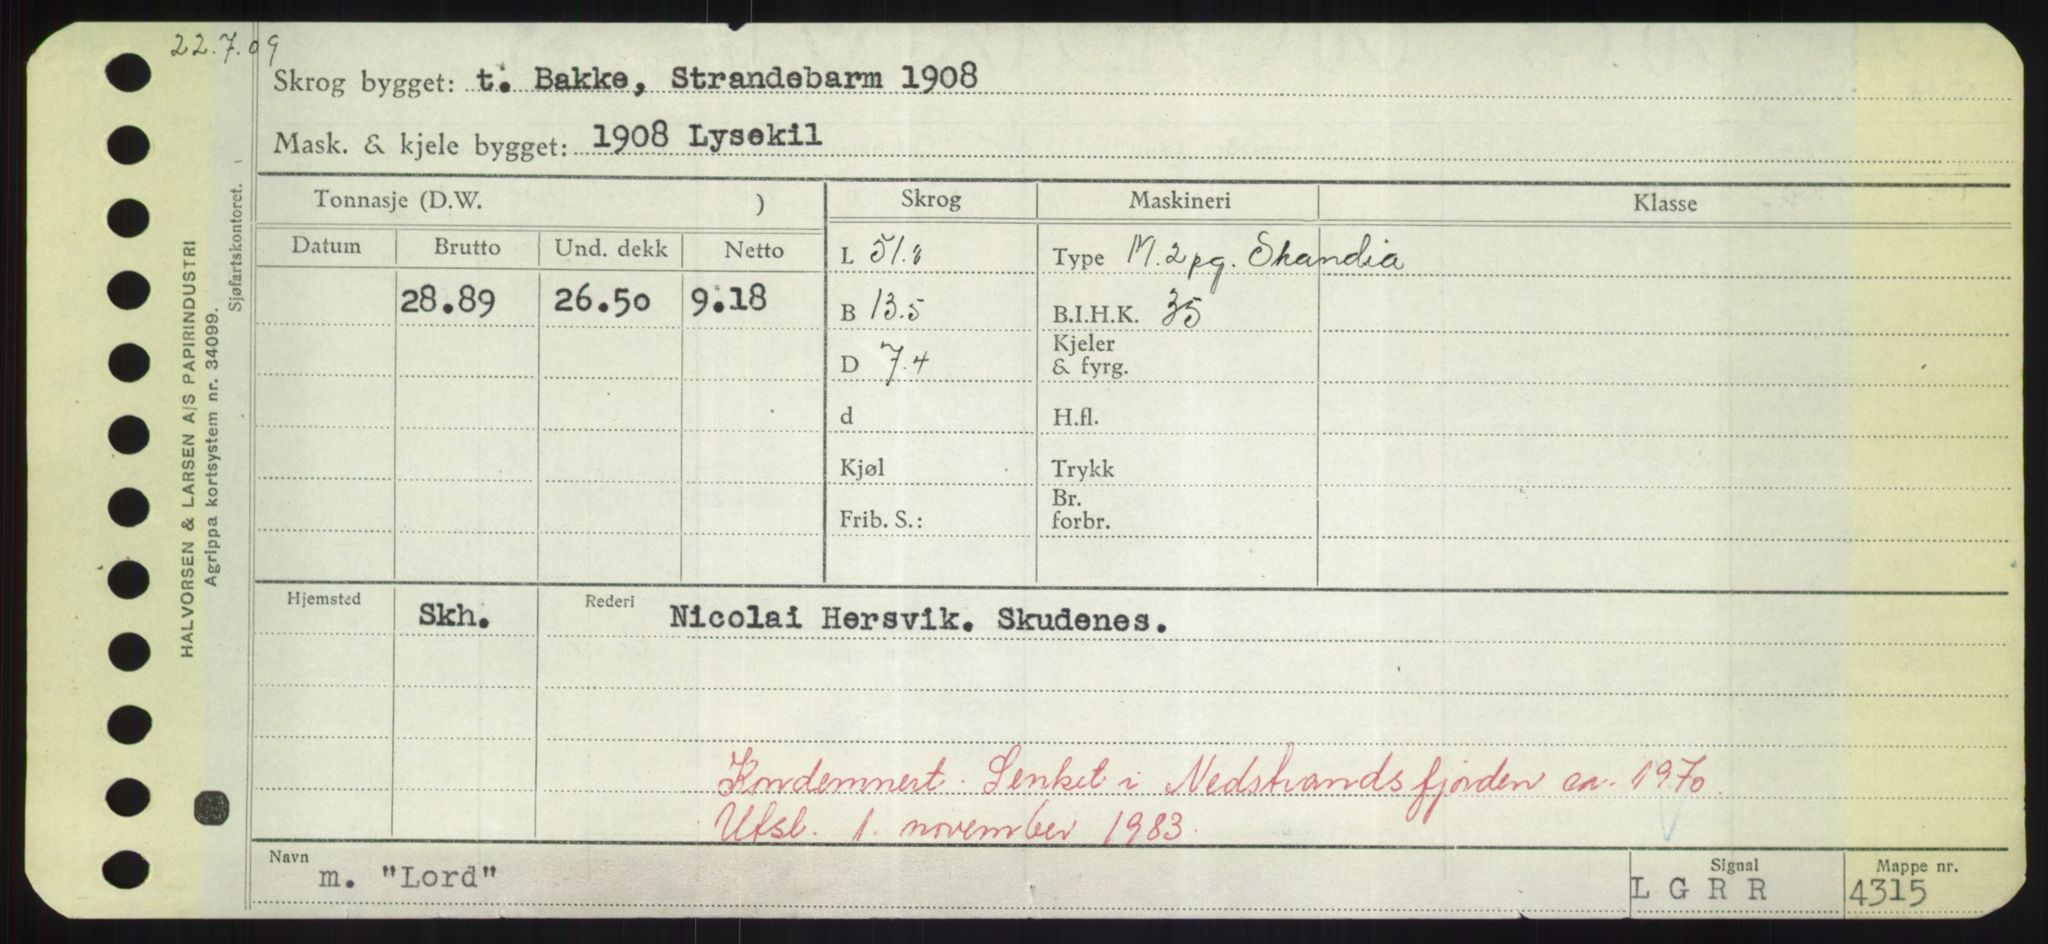 22.7.09
Skrog bygget: t. Bakke, Strandebarm 1908
Mask. & kjele bygget: 1908 Lysekil
Tonnasje (D.W. ) Skrog Maskineri Klasse
Datum Brutto Und. dekk Netto
L 51.8 Type M. 2 pg. Skandia
28.89 26.50 9.18
B 13.5 B.I.H.K. 35
D 7.4 Kjeler
& fyrg.
d H.fl.
Kjøl Trykk
Frib. S.: Br.
forbr.
Hjemsted Skh. Rederi Nicolai Hersvik. Skudenes.
Kondemnert. Senket i Nedstrandsfjorden ca. 1970.
Utsl. 1. november 1983.
Navn m. "Lord" Signal L G R R Mappe nr. 4315
HALVORSEN & LARSEN A/S PAPIRINDUSTRI
Agrippa kortsystem nr. 34099.
Sjøfartskontoret.